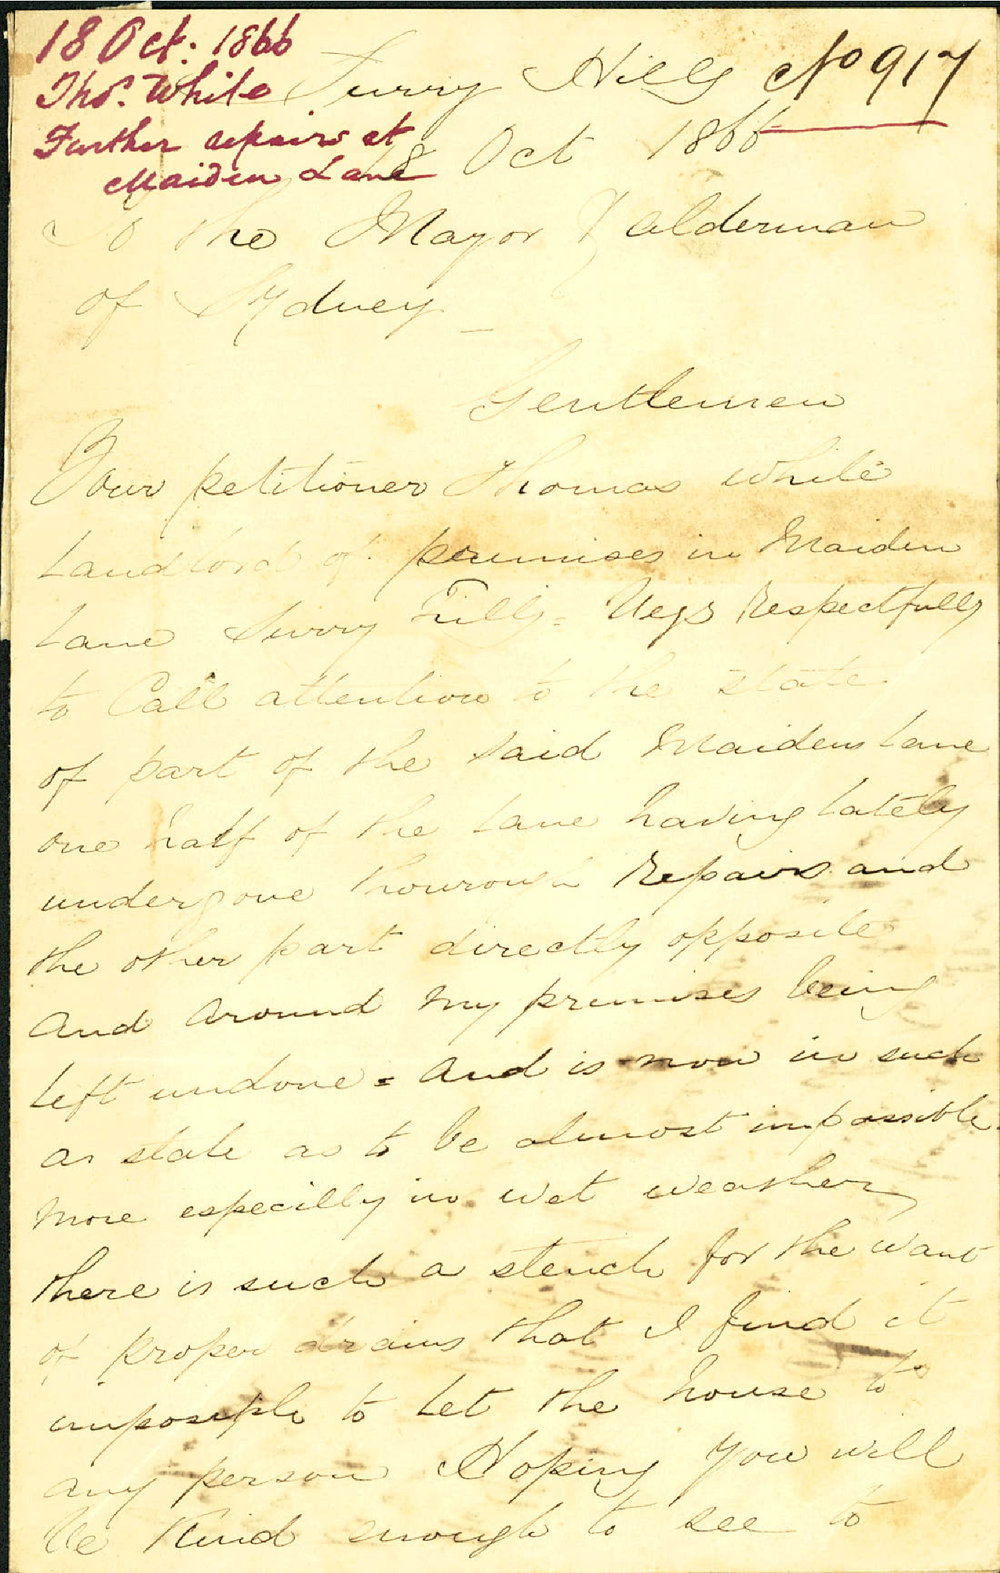 18 Oct. 1866
Thos. White
Further repairs at
Maiden Lane
No 917
Surry Hills
18 Oct 1866
To the Mayor & alderman
of Sydney
Gentlemen
Your petitioner Thomas White
Landlord of premises in Maiden
Lane Surry Hills = Begs Respectfully
to Call attention to the state
of part of the said Maiden Lane
one half of the Lane having lately
undergone thourough Repairs and
the other part directly opposite
and around my premises being
left undone = and is now in such
as state as to be almost impassible
more especilly in wet weather
there is such a stench for the want
of proper drains that I find it
imposiple to let the house to
any person Hoping you will
be Kind enough to see to